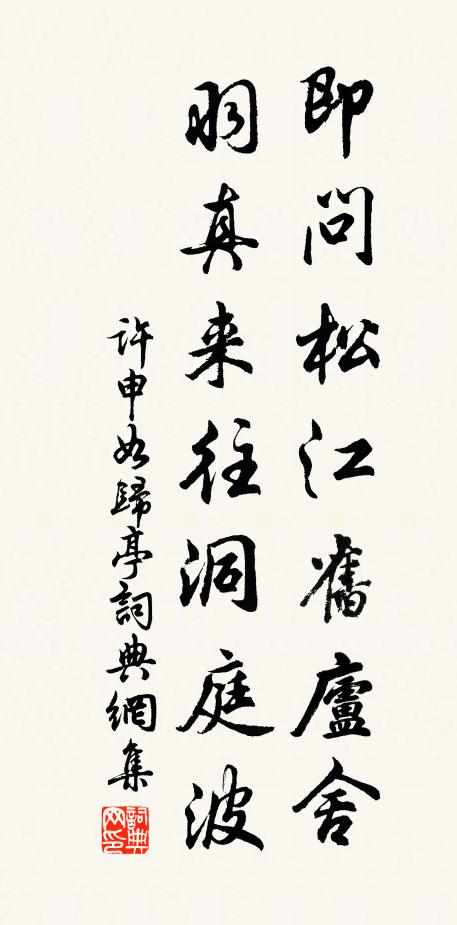 即問松江舊廬舍
羽真来往洞庭波
許申如歸亭詞典網集
詞典网印